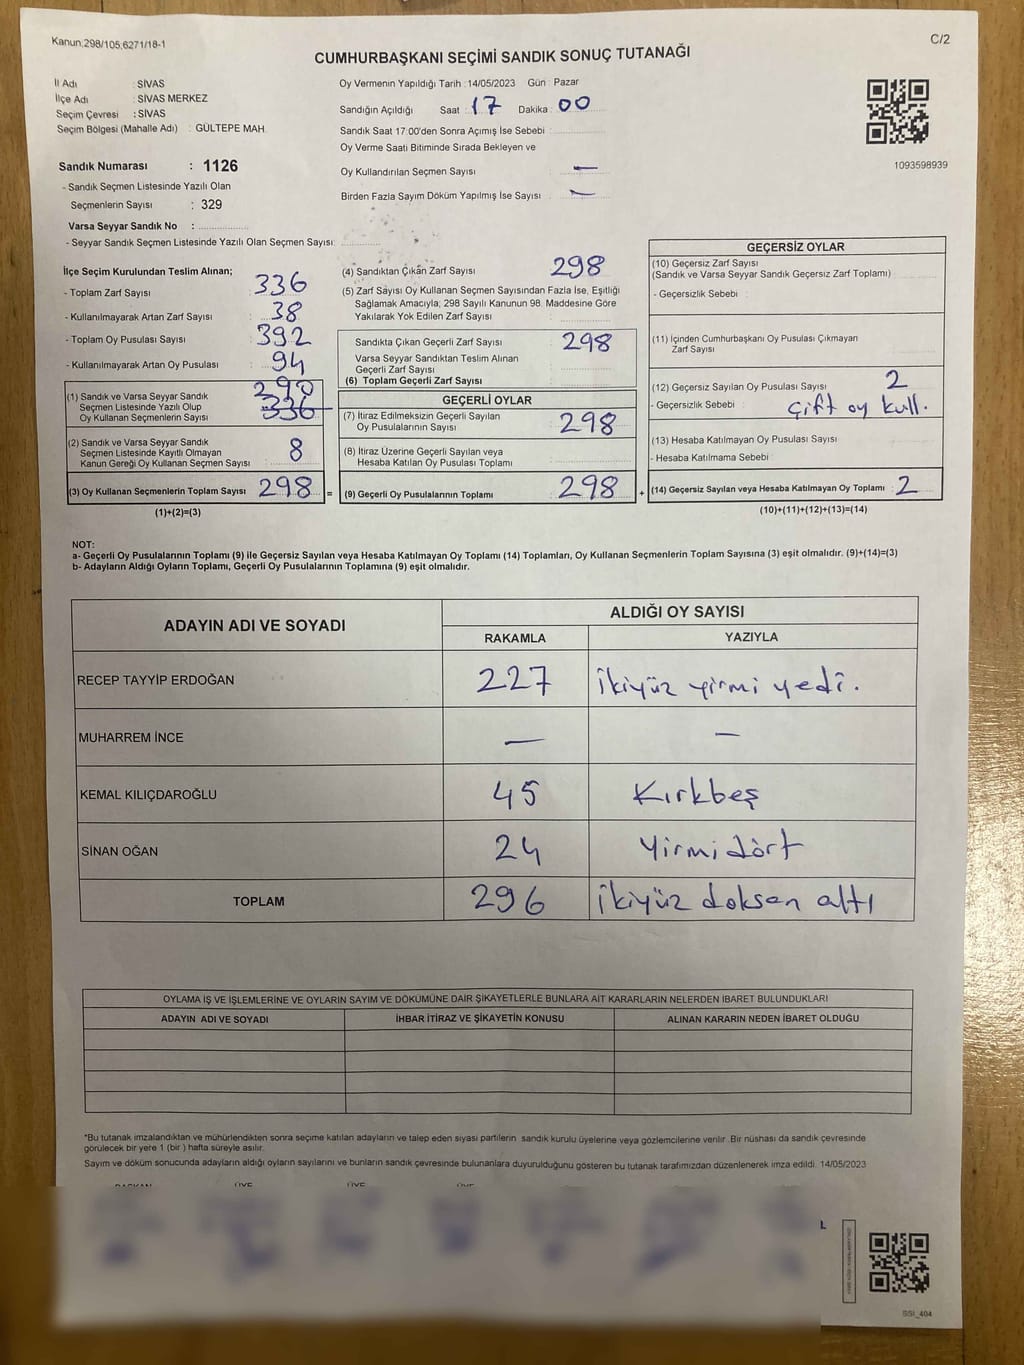 Kanun:298/105;6271/18-1
C/2
CUMHURBAŞKANI SEÇİMİ SANDIK SONUÇ TUTANAĞI
İl Adı : SİVAS
İlçe Adı : SİVAS MERKEZ
Seçim Çevresi : SİVAS
Seçim Bölgesi (Mahalle Adı) : GÜLTEPE MAH.
Sandık Numarası : 1126
- Sandık Seçmen Listesinde Yazılı Olan
Seçmenlerin Sayısı : 329
Varsa Seyyar Sandık No :
- Seyyar Sandık Seçmen Listesinde Yazılı Olan Seçmen Sayısı:
Oy Vermenin Yapıldığı Tarih :14/05/2023 Gün : Pazar
Sandığın Açıldığı Saat : 17 Dakika : 00
Sandık Saat 17:00'den Sonra Açımış İse Sebebi :
Oy Verme Saati Bitiminde Sırada Bekleyen ve
Oy Kullandırılan Seçmen Sayısı : —
Birden Fazla Sayım Döküm Yapılmış İse Sayısı : —
1093598939
İlçe Seçim Kurulundan Teslim Alınan;
- Toplam Zarf Sayısı : 336
- Kullanılmayarak Artan Zarf Sayısı : 38
- Toplam Oy Pusulası Sayısı : 392
- Kullanılmayarak Artan Oy Pusulası : 94
(1) Sandık ve Varsa Seyyar Sandık 290
Seçmen Listesinde Yazılı Olup 336
Oy Kullanan Seçmenlerin Sayısı
(2) Sandık ve Varsa Seyyar Sandık
Seçmen Listesinde Kayıtlı Olmayan 8
Kanun Gereği Oy Kullanan Seçmen Sayısı
(3) Oy Kullanan Seçmenlerin Toplam Sayısı 298 =
(1)+(2)=(3)
(4) Sandıktan Çıkan Zarf Sayısı 298
(5) Zarf Sayısı Oy Kullanan Seçmen Sayısından Fazla İse, Eşitliği
Sağlamak Amacıyla; 298 Sayılı Kanunun 98. Maddesine Göre
Yakılarak Yok Edilen Zarf Sayısı :
Sandıkta Çıkan Geçerli Zarf Sayısı : 298
Varsa Seyyar Sandıktan Teslim Alınan
Geçerli Zarf Sayısı :
(6) Toplam Geçerli Zarf Sayısı :
GEÇERLİ OYLAR
(7) İtiraz Edilmeksizin Geçerli Sayılan
Oy Pusulalarının Sayısı : 298
(8) İtiraz Üzerine Geçerli Sayılan veya
Hesaba Katılan Oy Pusulası Toplamı :
(9) Geçerli Oy Pusulalarının Toplamı : 298 +
GEÇERSİZ OYLAR
(10) Geçersiz Zarf Sayısı
(Sandık ve Varsa Seyyar Sandık Geçersiz Zarf Toplamı) :
- Geçersizlik Sebebi :
(11) İçinden Cumhurbaşkanı Oy Pusulası Çıkmayan
Zarf Sayısı
(12) Geçersiz Sayılan Oy Pusulası Sayısı : 2
- Geçersizlik Sebebi : Çift oy kull.
(13) Hesaba Katılmayan Oy Pusulası Sayısı :
- Hesaba Katılmama Sebebi :
(14) Geçersiz Sayılan veya Hesaba Katılmayan Oy Toplamı : 2
(10)+(11)+(12)+(13)=(14)
NOT:
a- Geçerli Oy Pusulalarının Toplamı (9) ile Geçersiz Sayılan veya Hesaba Katılmayan Oy Toplamı (14) Toplamları, Oy Kullanan Seçmenlerin Toplam Sayısına (3) eşit olmalıdır. (9)+(14)=(3)
b- Adayların Aldığı Oyların Toplamı, Geçerli Oy Pusulalarının Toplamına (9) eşit olmalıdır.
ADAYIN ADI VE SOYADI ALDIĞI OY SAYISI
RAKAMLA YAZIYLA
RECEP TAYYİP ERDOĞAN 227 İkiyüz yirmi yedi.
MUHARREM İNCE — —
KEMAL KILIÇDAROĞLU 45 Kırkbeş
SİNAN OĞAN 24 Yirmidört
TOPLAM 296 İkiyüz doksan altı
OYLAMA İŞ VE İŞLEMLERİNE VE OYLARIN SAYIM VE DÖKÜMÜNE DAİR ŞİKAYETLERLE BUNLARA AİT KARARLARIN NELERDEN İBARET BULUNDUKLARI
ADAYIN ADI VE SOYADI İHBAR İTİRAZ VE ŞİKAYETİN KONUSU ALINAN KARARIN NEDEN İBARET OLDUĞU
"Bu tutanak imzalandıktan ve mühürlendikten sonra seçime katılan adayların ve talep eden siyasi partilerin sandık kurulu üyelerine veya gözlemcilerine verilir. Bir nüshası da sandık çevresinde
görülecek bir yere 1 (bir) hafta süreyle asılır.
Sayım ve döküm sonucunda adayların aldığı oyların sayılarını ve bunların sandık çevresinde bulunanlara duyurulduğunu gösteren bu tutanak tarafımızdan düzenlenerek imza edildi. 14/05/2023
BAŞKAN ÜYE ÜYE ÜYE
SSI_404